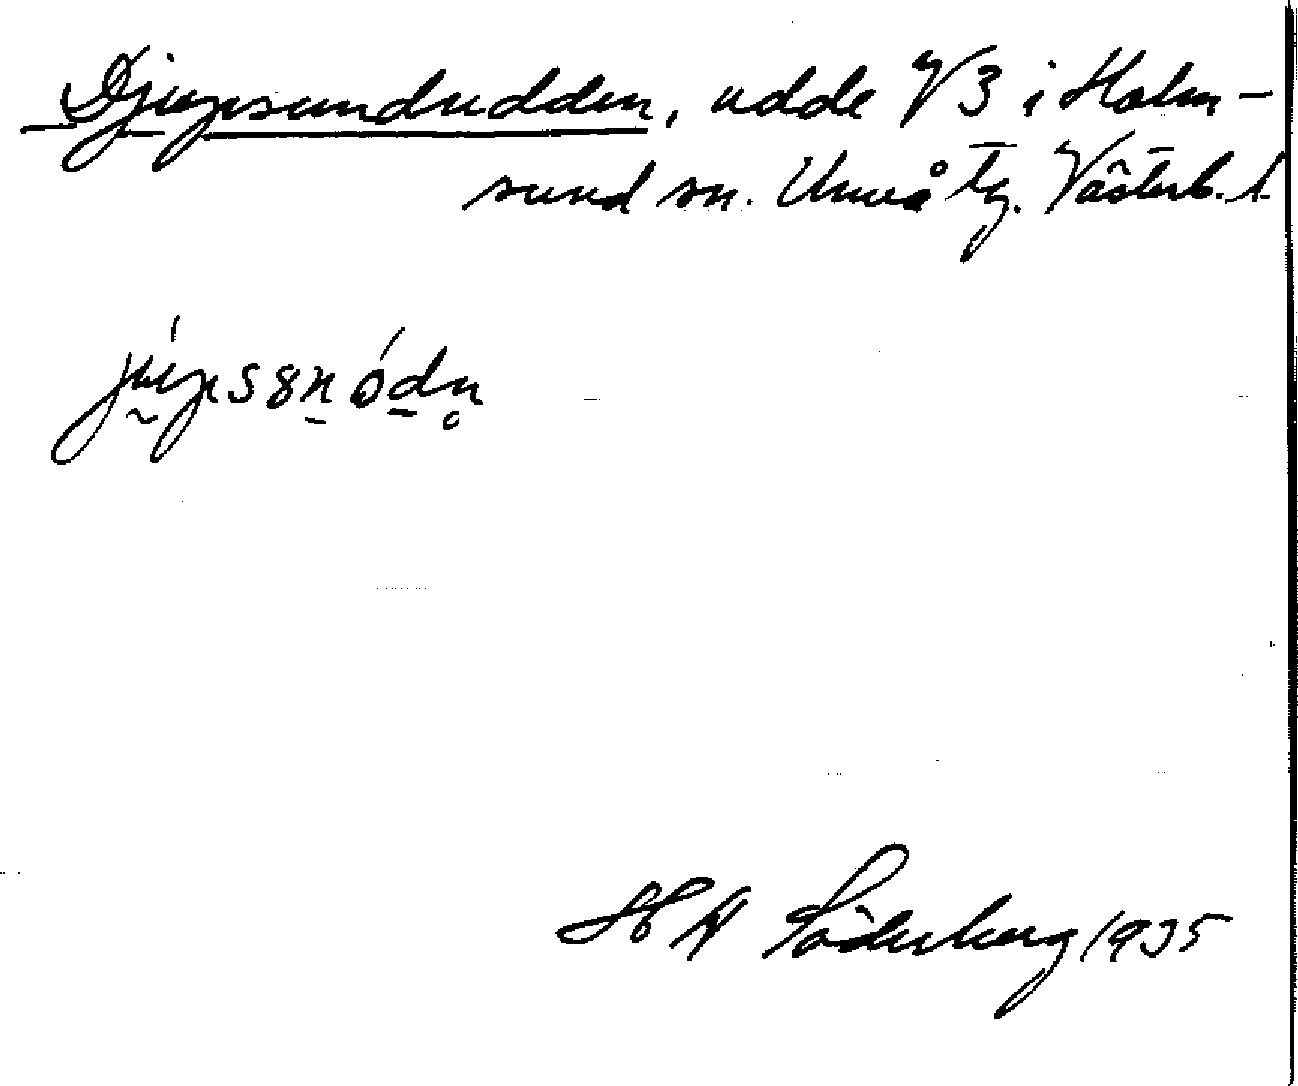 Djupsundudden, udde V3 i Holm-
sund sn. Umeå tg. Västerb. l.
H W Söderberg 1935